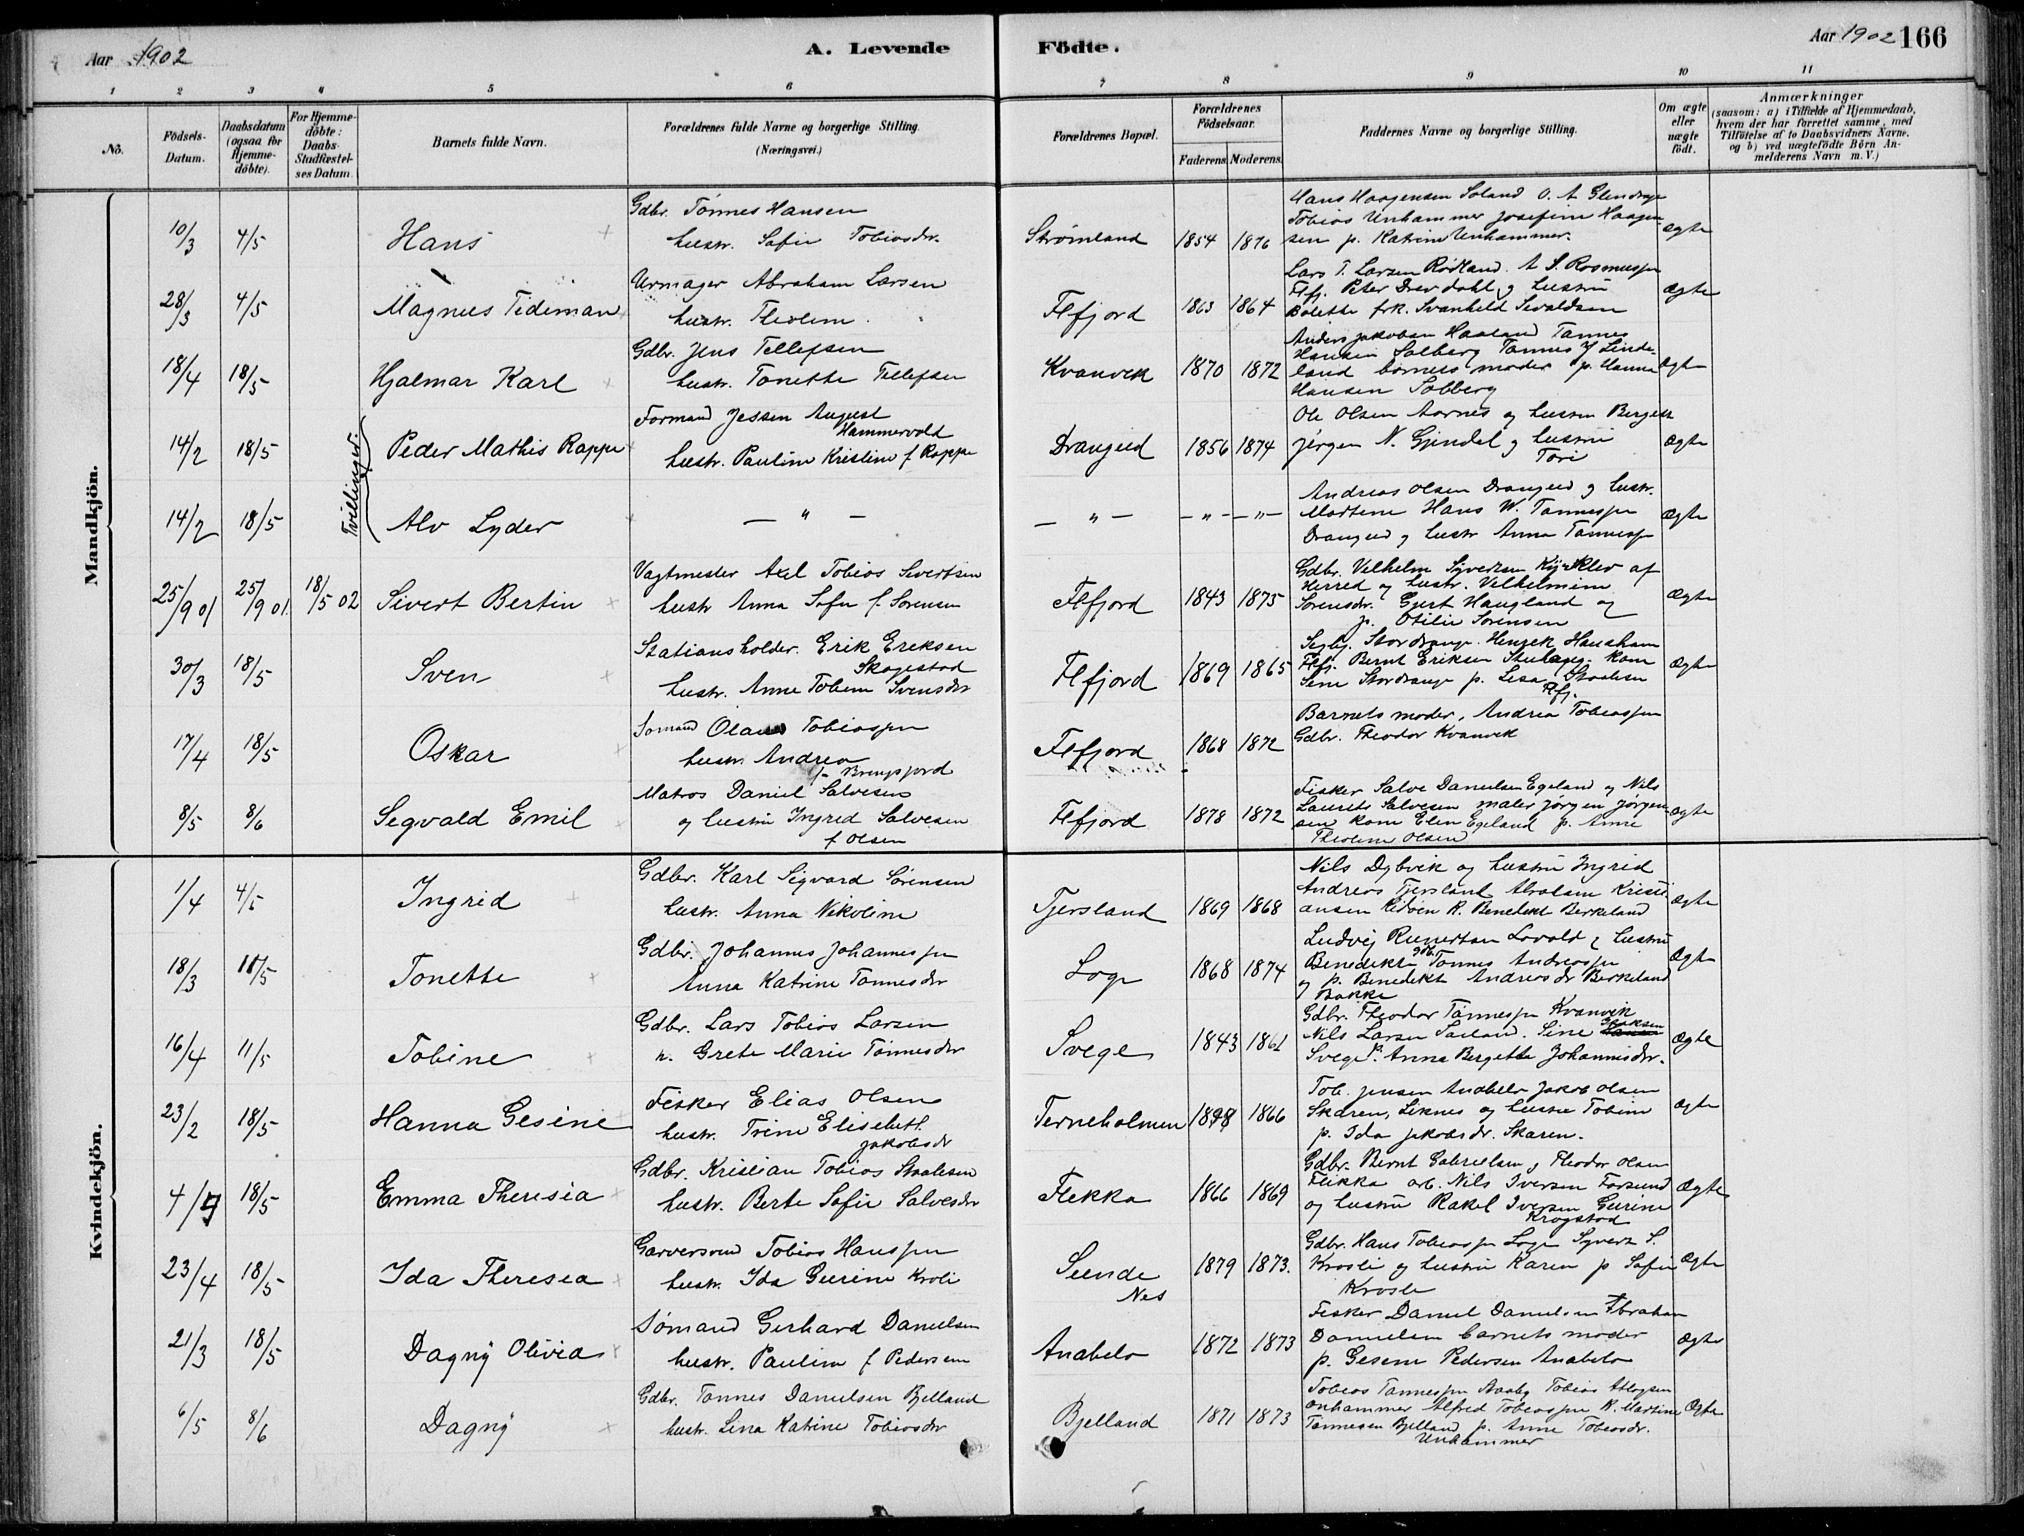 Aar 1902
A. Levende
Födte.
Aar 1902
166
1 2 3 4 5 6 7 8 9 10 11
No.
Födsels-Datum.
Daabsdatum (ogsaa för Hjemme-döbte).
For Hjemme-döbte: Daabs-Stadfæstel-ses Datum.
Barnets fulde Navn.
Forældrenes fulde Navne og borgerlige Stilling.
(Næringsvei.)
Forældrenes Bopæl.
Forældrenes Födselsaar.
Faderens. Moderens.
Faddernes Navne og borgerlige Stilling.
Om ægte eller uægte födt.
Anmærkninger
(saasom: a) i Tilfælde af Hjemmedaab,
hvem der har forrettet samme, med
Tilföielse af to Daabsvidners Navne,
og b) ved uægtefödte Börn An-
melderens Navn m. V.)
Mandkjön.
10/3 4/5 Hans
Gdbr. Tönnes Hansen
hustr. Sofie Tobiasdr.
Strömland 1854 1876
Hans Haagensen Soland O. A.
Tobias Unhammer Josefine Haagen
sen p. Katrine Unhammer.
ægte
28/3 4/5 Magnus Tideman
Urmager Abraham Larsen
hustr. Theoline
Flfjord 1863 1864
Lars T. Larsen Rödland. A S. Rasmussen
Flfj. Peter Drevdahl og hustru
Bolette frk. Svanhild Sivaldsen
Ægte
18/4 18/5 Hjalmar Karl
Gdbr. Jens Tellefsen
hustr. Tonette Tellefsen
Kvanvik 1870 1872
Anders Jakobsen Haaland Tönnes
Hansen Solberg Tönnes J Linde-
land barnets moder p. Hanna
Hansen Solberg
Ægte
Tvillinger:
14/2 18/5 Peder Mathis Rappe
Formand Jessen August
Hammervold
hustr. Pauline Kristine f Rappe
Drangeid 1856 1874
Ole Olsen Aarnes og hustru Bergett
Jörgen N. Gjindal og hustru
Tori
Ægte
14/2 18/5 Alv Lyder
— " —
— " — — " — — " —
Andreas Olsen Drangeid og hustr.
Martine Hans W. Tönnessen
Drangeid og hustr Anna Tönnesen
Ægte
25/9 01 25/9 01. 18/5 02 Sivert Bertin
Vagtmester Axel Tobias Sivertsen
hustr Anna Sofie f. Sorensen
Flfjord 1843 1875
Gdbr. Vilhelm Sivertsen af
Herred og hustr. Vilhelmine
Sorensdr. Gjert Haugland og
p. Otilie Sorensen
Ægte
30/3 18/5 Sven
Stationsholder. Erik Eriksen
Skagestad
hustr. Anne Tobine Svensdr
Flfjord 1869 1865
Stordrange. Henrik Hausham
Flfj. Bernt Eriksen kone
Sine Stordrange p. Lisa
Flfj.
Ægte
17/4 18/5 Oskar
Sömand Olaus Tobiassen
hustr. Andrea
f. Brengsfjord
Flfjord 1868 1872
Barnets moder, Andrea Tobiassen
Gdbr. Theodor Kvanvik
8/5 8/6 Segvald Emil
Matros Daniel Salvesen
og hustru Ingrid Salvesen
f Olsen
Flfjord 1878 1872
Fisker Salve Danielsen Egeland og Nils
Laurits Salvesen maler Jörgen Jörgen-
sen kone Elen Egeland p. Anne
Theoline Olsen
ægte
Kvindekjön.
1/4 4/5 Ingrid
Gdbr. Karl Sigvard Sörensen
hustr. Anna Nikoline
Tjersland 1869 1868
Nils Dybvik og hustru Ingrid
Andreas Tjersland Abraham Kristi
ansen Kidöen R. Benedikt Berkeland
Ægte
18/3 11/5 Tonette
Gdbr. Johannes Johannessen
Anna Katrine Tönnesdr
Loge 1868 1874
Ludvig Reinertsen Lovald og hustru
Benedikte gdb. Tönnes Andreassen
og p. Benedikt Andreasdr Berkeland
Bakke
Ægte
16/4 11/5 Tobine
Gdbr. Lars Tobias Larsen
h. Grete Marie Tönnesdr
Svege 1843 1861
Gdbr. Theodor Tönnessen Kvanvik
Nils Larsen Sailand. Sine
Svege p. Anna Bergette Johannesdr.
Ægte
23/2 18/5 Hanna Gesine
Fisker Elias Olsen
hustr. Trine Elisebeth
Jakobsdr
Terneholmen 1878 1866
Tob. Jensen Anabelo Jakob Olsen
Skaren, Liknes og hustru Tobine
p. Ida Jakobsdr. Skaren.
Ægte
4/9 18/5 Emma Theresia
Gdbr. Kristian Tobias Staalesen
hustr. Berte Sofie Salvesdr
Flekka 1866 1869
Gdbr. Bernt Gabrielsen og Theodor Olsen
Flikka arb. Nils Iversen Forsund
og hustru Rakel Iversen Guirine
Krogstad
Ægte
23/4 18/5 Ida Theresea
Garversvend Tobias Hanssen
hustr. Ida Gurine Kroli
Sunde
Nes 1879 1873.
Gdbr. Hans Tobiassen Loge Syvert S.
Krosli og hustru Karen p Sofie
Krosle
Ægte
21/3 18/5 Dagny Olivia
Sömand Gerhard Danielsen
hustr. Pauline f Pedersen
Anabelo 1872 1873
Fisker Daniel Danielsen Abraham
Danielsen barnets moder
p. Gesine Pedersen Anabelo
Ægte
6/5 8/6 Dagny
Gdbr. Tönnes Danielsen Bjelland
hustr. Lina Katrine Tobiasdr
Bjelland 1871 1873
Tobias Tönnessen Aaaby Tobias Atlagsen
Onhammer Alfred Tobiassen K. Martine
Tönnesen Bjelland p. Anne Tobiasdr.
Unhammer
Ægte